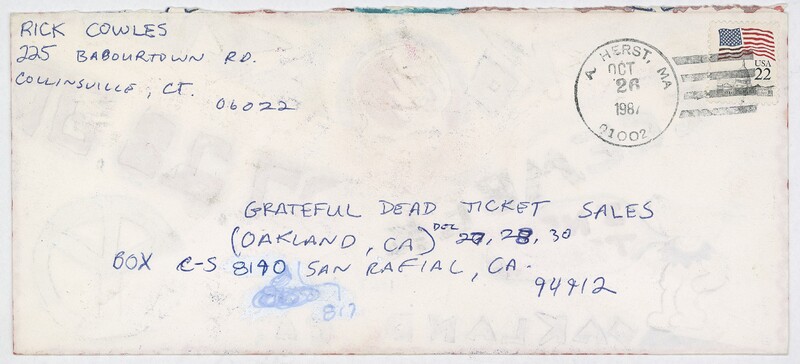 RICK COWLES
225 BABOURTOWN RD.
COLLINSVILLE, CT.
06022
AMHERST, MA
OCT
26
1987
01002
USA
22
GRATEFUL DEAD TICKET SALES
(OAKLAND, CA) DEC 27, 28, 30
BOX C-S 8190 SAN RAFIAL, CA.
94912
817
OAKLAND